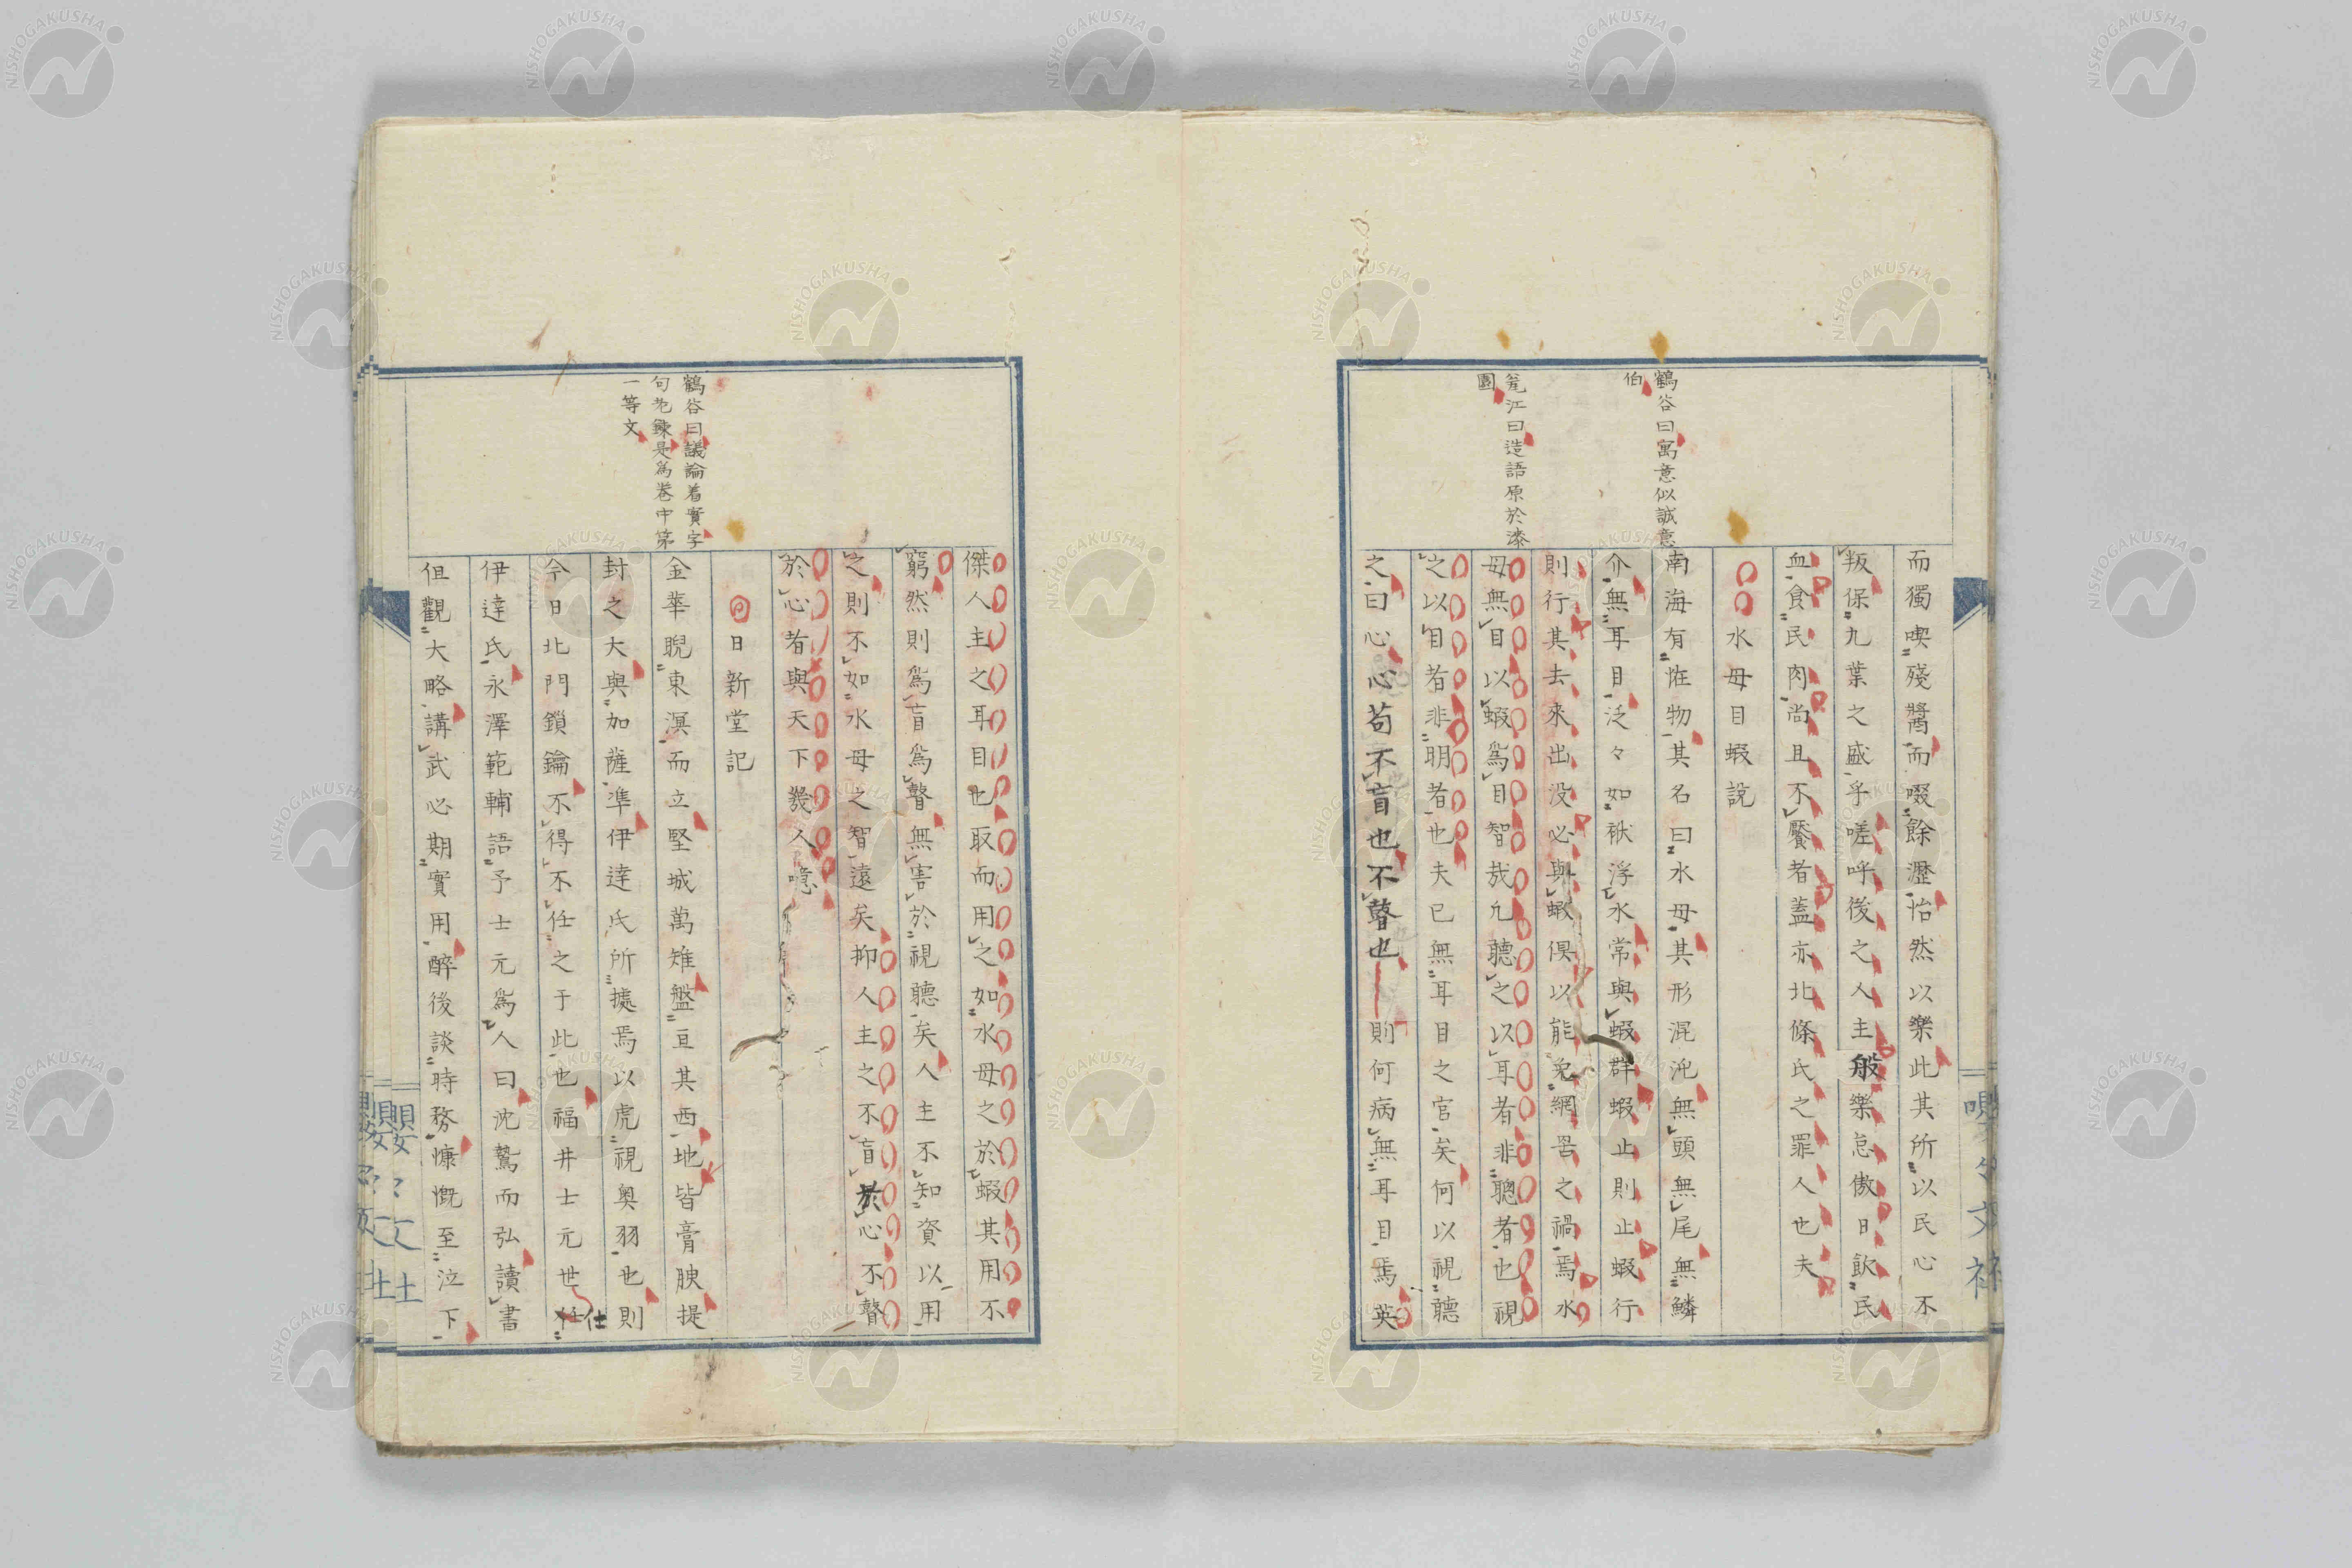 鶴谷曰寓意似誠意
伯
篭江曰造語原於漆
園
而獨喫殘醬而啜餘瀝怡然以樂此其所以民心不
叛保九葉之盛乎嗟呼後之人主般樂怠傲日飲民
血食民肉尚且不饜者蓋亦北條氏之罪人也夫
水母目蝦説
南海有恠物其名曰水母其形混沌無頭無尾無鱗
介無耳目泛々如袱浮水常與蝦群蝦止則止蝦行
則行其去來出没必與蝦俱以能免網罟之禍焉水
母無目以蝦爲目智哉允聽之以耳者非聰者也視
之以目者非明者也夫已無耳目之官矣何以視聽
之曰心心苟不盲也不聾也則何病無耳目焉英
鶴谷曰議論着實字
句老鍊是爲卷中第
一等文
傑人主之耳目也取而用之如水母之於蝦其用不
窮然則爲盲爲聾無害於視聽矣人主不知資以用
之則不如水母之智遠矣抑人主之不盲於心不聾
於心者與天下幾人噫
日新堂記
金華睨東溟而立堅城萬雉盤亘其西地皆膏腴提
封之大與加薩準伊達氏所據焉以虎視奥羽也則
今日北門鎖鑰不得不任之于此也福井士元世仕
伊達氏永澤範輔語予士元爲人曰沈鷙而弘讀書
但觀大略講武必期實用醉後談時務慷慨至泣下
嚶々文社
NISHOGAKUSHA